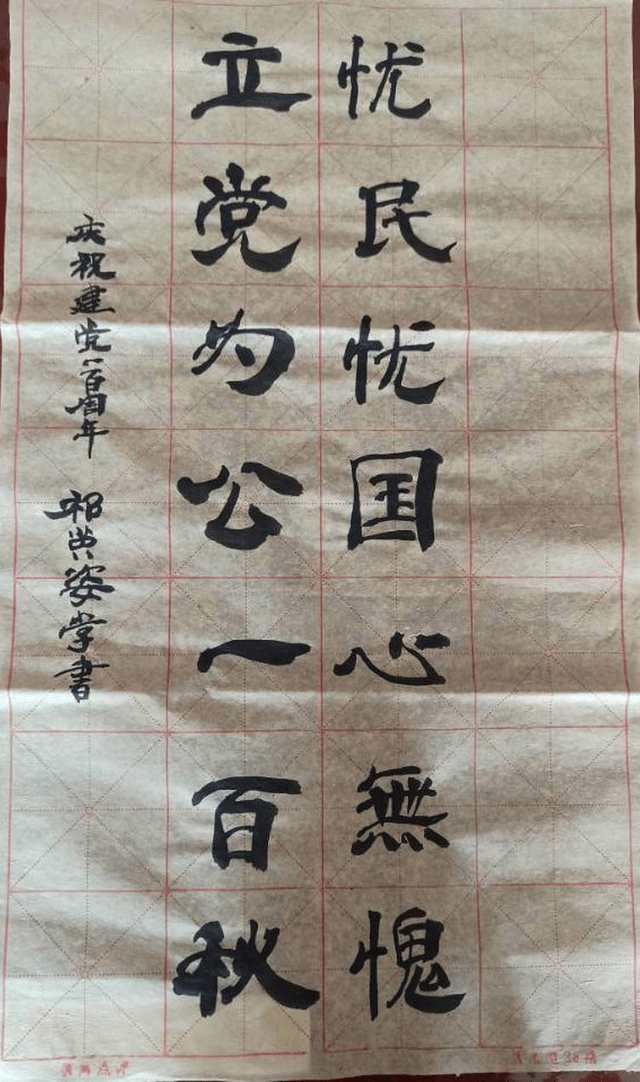 忧民忧国心無愧
立党为公一百秋
庆祝建党一百周年
祁 姿学书